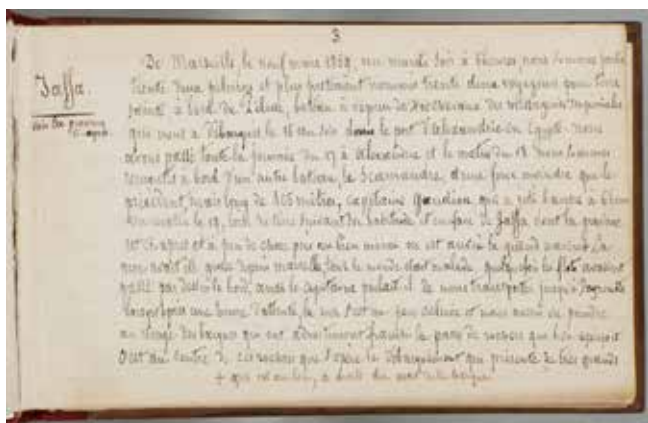 3
Jaffa.
De Marseille le neuf mars 1869, un mardi soir à 4 heures, nous sommes partis
trente deux pèlerins et plus justement nommés trente deux voyageurs pour terre
sainte à bord de bateau à vapeur de chevaux des messageries impériales
qui nous a débarqués le 16 au soir dans le port d'Alexandrie en Egypte. nous
avons passé toute la journée du 17 à Alexandrie et le matin du 18 nous sommes
remontés à bord d'un autre bateau, le Scamandre, d'une force moindre que le
précédent, mais long de 105 mètres, capitaine Gaudion qui a jeté l'ancre à
du matin le 19, de terre suivant l'habitude et en face de Jaffa dont la gravure
est ci-après et a peu de chose près au bien marin où est ancré le grand navire. La
mer avait été grosse depuis Marseille, tout le monde était malade, quelquefois les flots avaient
passé par dessus le bord, aussi le capitaine parlait-il de nous transporter jusqu'à
lorsqu'après une heure d'attente, la mer s'est un peu calmée et nous avons vu poindre
au rivage des barques qui ont adroitement franchi la passe de rochers que bien
C'est au centre de ces rochers que s'opère le débarquement qui présente de très grands
+ qui est au loin, à droite du mat de la barque